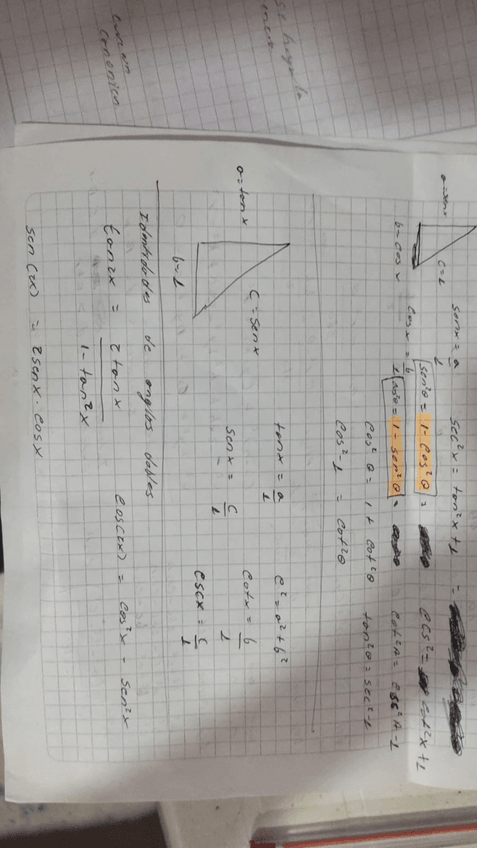 a=senx
c=1
b=cosx
senx = a/1
cosx = b/1
sec²x = tan²x + 1 =
sen²θ = 1 - cos²θ =
cos²θ = 1 - sen²θ =
csc² = cot²x + 1
cot²A = csc²A - 1
cos²θ = 1 + cot²θ
tan²θ = sec² - 1
cos² - 1 = cot²θ
a=tanx
c=senx
b=1
tanx = a/1
c² = a² + b²
senx = c/1
cotx = b/1
cscx = c/1
Identidades de anglos dobles
tan2x = 2tanx / 1 - tan²x
cos(2x) = cos²x - sen²x
sen(2x) = 2senx · cosx